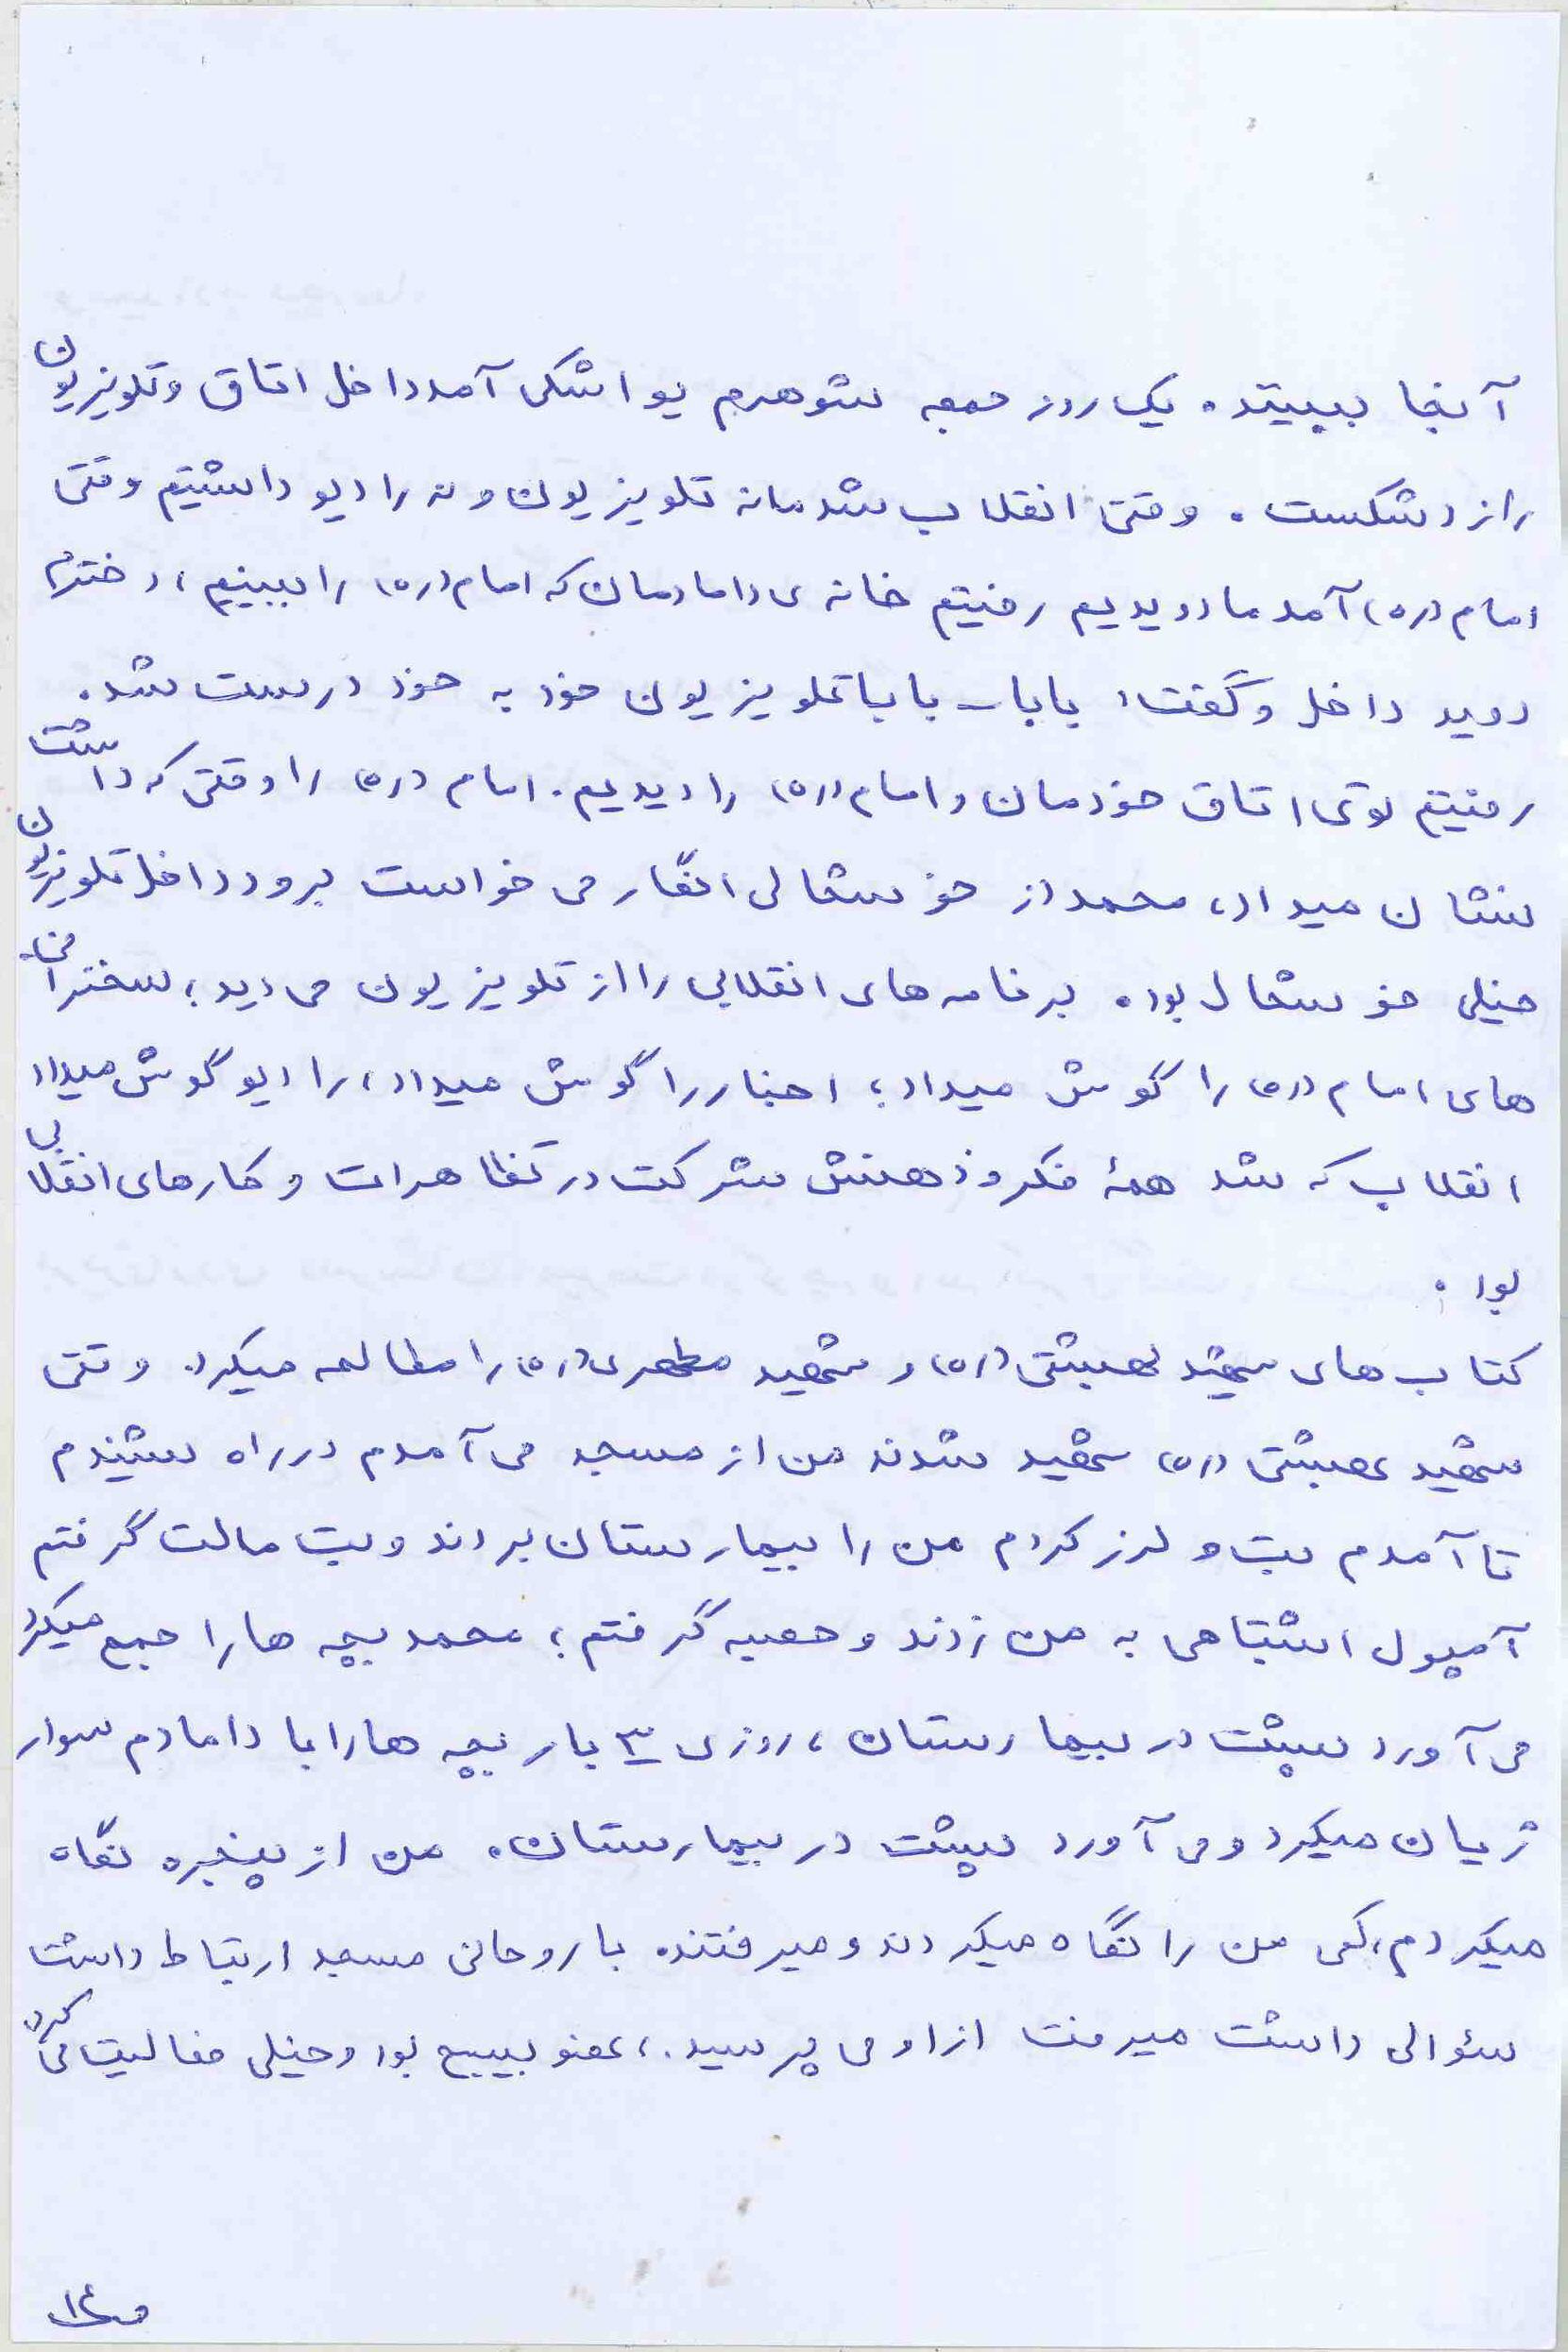 آنجا ببیند. یک روز جمعه شوهرم یواشکی آمد داخل اتاق و تلویزیون
را زد شکست. وقتی انقلاب شد ما نه تلویزیون و نه رادیو داشتیم وقتی
امام (ره) آمد ما دویدیم رفتیم خانه ی دامادمان که امام (ره) را ببینیم، دخترم
دوید داخل و گفت: بابا - بابا تلویزیون خود به خود درست شد.
رفتیم توی اتاق خودمان و امام (ره) را دیدیم. امام (ره) را وقتی که داشت
نشان میداد، محمد از خوشحالی انگار می خواست برود داخل تلویزیون
خیلی خوشحال بود. برنامه های انقلابی را از تلویزیون می دید؛ سخنرانی
های امام (ره) را گوش میداد؛ اخبار را گوش میداد، رادیو گوش میداد
انقلاب که شد همهٔ فکر و ذهنش شرکت در تظاهرات و کارهای انقلابی
بود.
کتاب های شهید بهشتی (ره) و شهید مطهری (ره) را مطالعه میکرد. وقتی
شهید بهشتی (ره) شهید شدند من از مسجد می آمدم در راه شنیدم
تا آمدم تب و لرز کردم من را بیمارستان بردند و تب مالت گرفتم
آمپول اشتباهی به من زدند و حصبه گرفتم؛ محمد بچه ها را جمع میکرد
می آورد پشت در بیمارستان، روزی ۳ بار بچه ها را با دامادم سوار
ژیان میکرد و می آورد پشت در بیمارستان. من از پنجره نگاه
میکردم، کمی من را نگاه میکردند و میرفتند. با روحانی مسجد ارتباط داشت
سئوالی داشت میرفت از او می پرسید.، عضو بسیج بود و خیلی فعالیت می کرد
ص۱۴